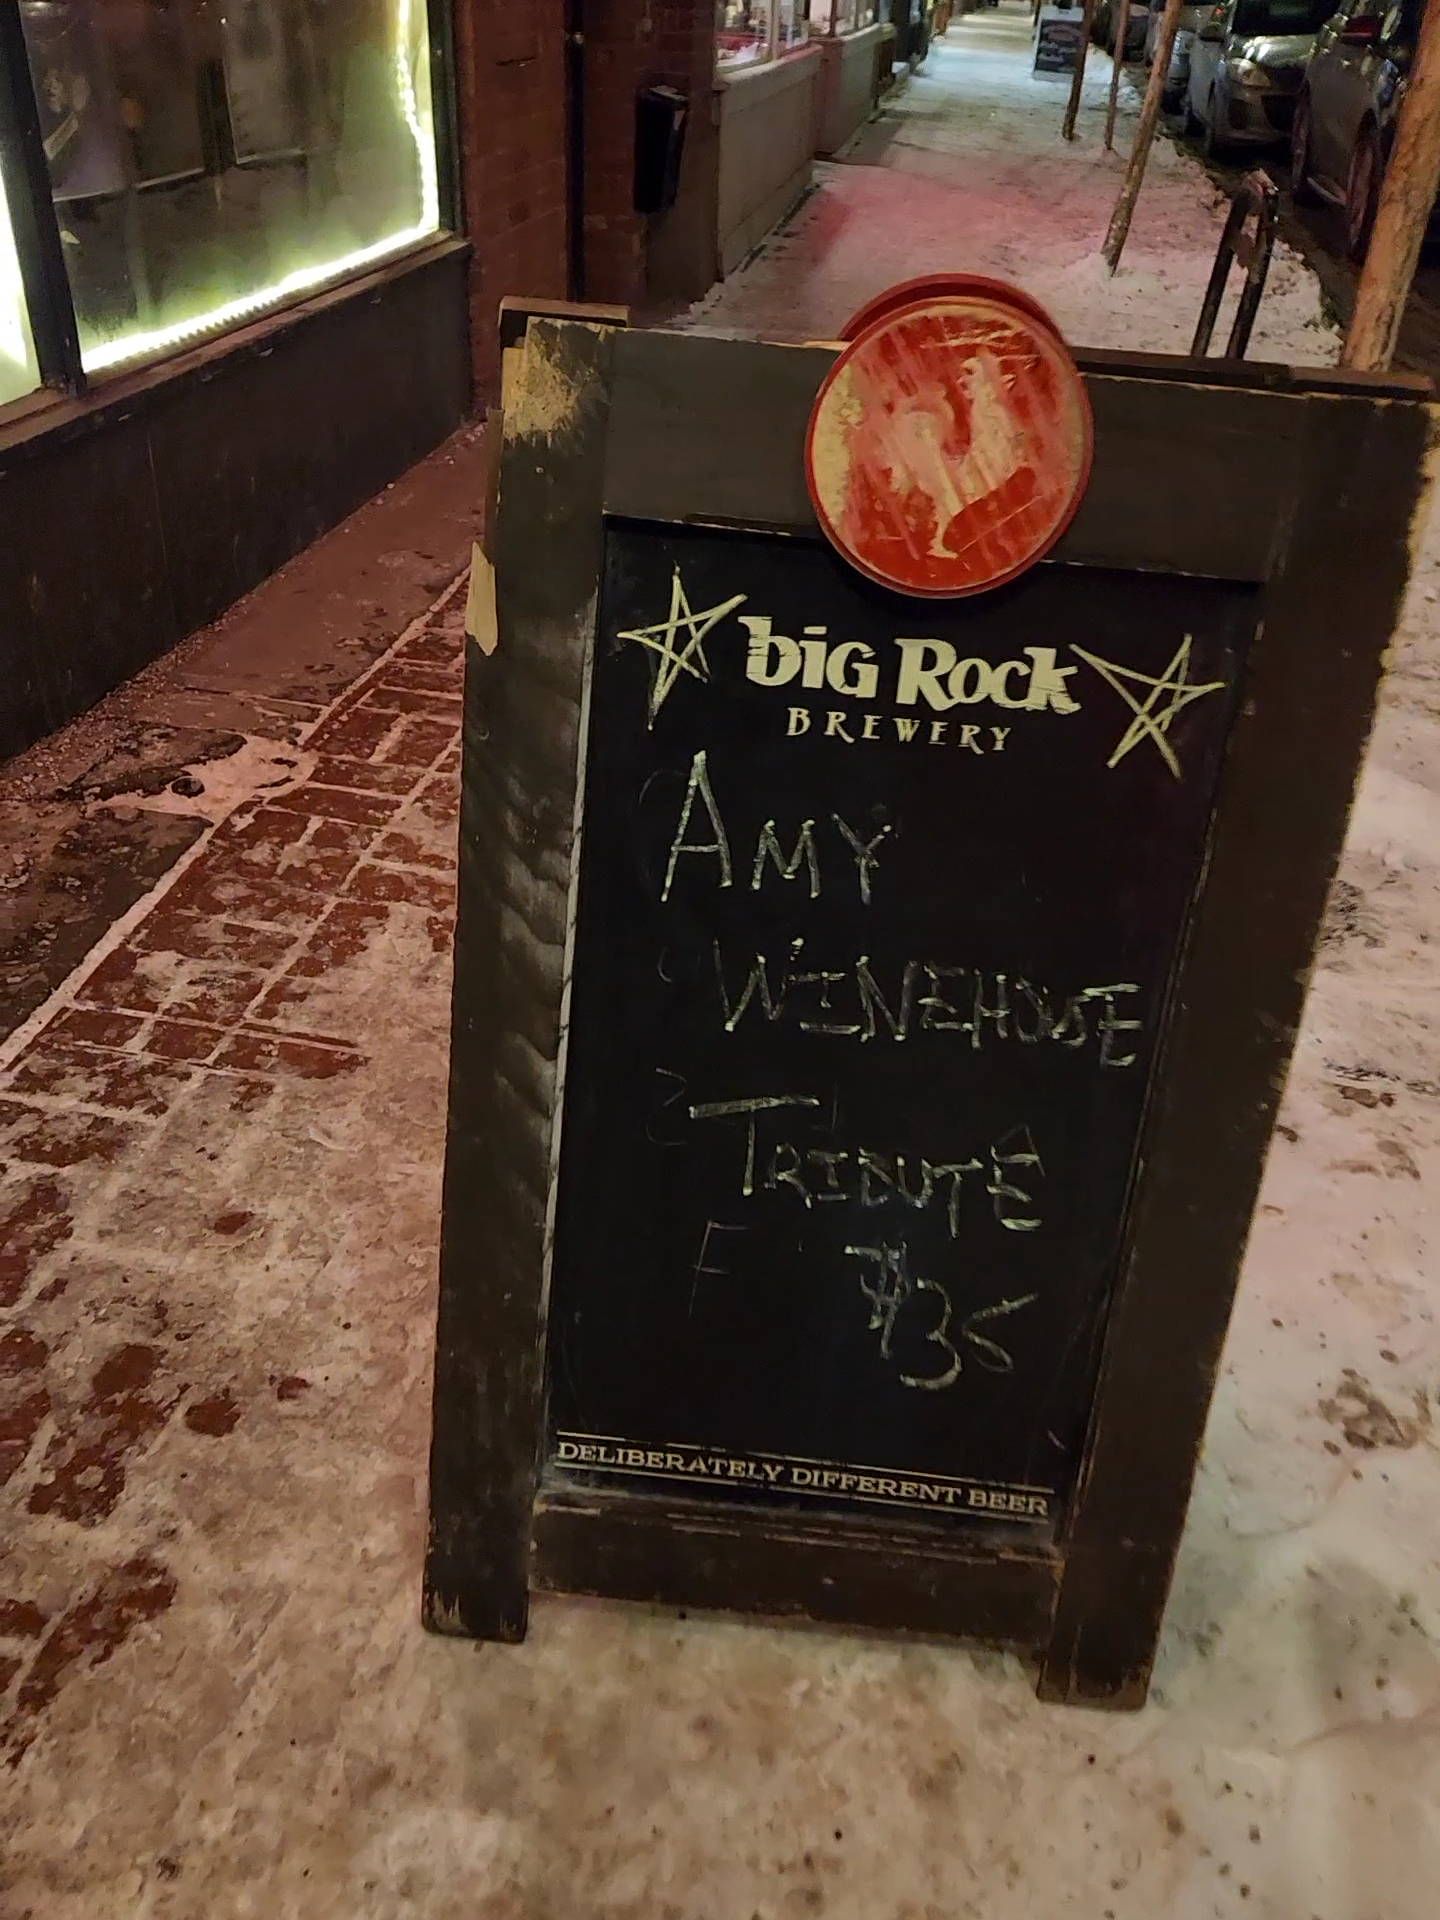 big Rock
BREWERY
AMY
WINEHOUSE
TRIBUTE
$35
DELIBERATELY DIFFERENT BEER